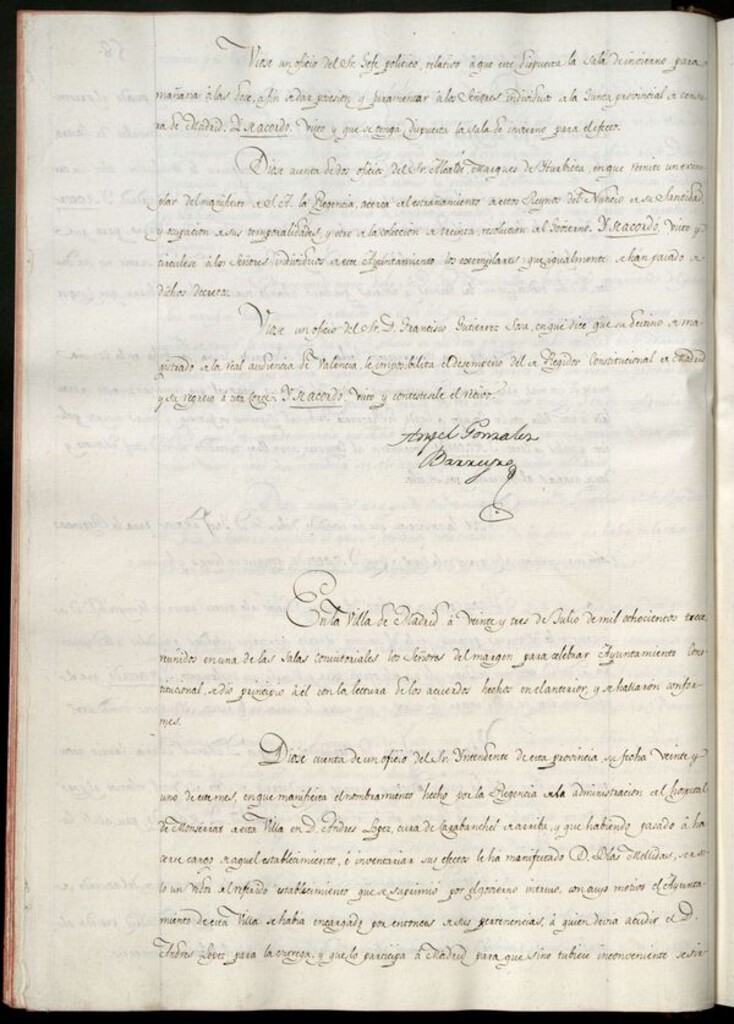 Viose un oficio del Sr. Gefe politico, relativo á que esté dispuesta la sala de invierno para
mañana á las doce, á fin de dar posesion y juramentar á los Señores individuos de la Junta provincial de censu-
ra de Madrid. Y se acordó. Visto y que se tenga dispuesta la sala de invierno para el efecto.
Diose cuenta de dos oficios del Sr. Alcalde, Marques de Iturbieta, en que remite un exem-
plar del manifiesto de S. A. la Regencia, acerca del estrañamiento de estos Reynos del Nuncio de su Santidad,
y ocupacion de sus temporalidades, y otro de la coleccion de treinta, resolucion del Govierno. Y se acordó. Visto y
circulese á los Señores individuos de este Ayuntamiento los exemplares que igualmente se han pasado de
dichos decretos.
Viose un oficio del Sr. D. Francisco Gutierrez Sosa, en que dice que su destino de ma-
gistrado de la real audiencia de Valencia, le imposibilita el desempeño del de Regidor Constitucional de Madrid
y su regreso á esta Corte. Y se acordó. Visto y contestesele el recivo.
Angel Gonzalez
Barreyro
En la Villa de Madrid á Veinte y tres de Julio de mil ochocientos trece,
reunidos en una de las Salas consistoriales los Señores del margen para celebrar Ayuntamiento Cons-
titucional, se dio principio á el con la lectura de los acuerdos hechos en el anterior, y se hallaron confor-
mes.
Diose cuenta de un oficio del Sr. Yntendente de esta provincia, su fecha veinte y
uno de este mes, en que manifiesta el nombramiento hecho por la Regencia de la administracion del hospital
de Monserrat de esta Villa en D. Andres Lopez, cura de Carabanchel de arriba, y que habiendo pasado á ha-
cerse cargo de aquel establecimiento, é inventariar sus efectos le ha manifestado D. Blas Mellidas,
lo un del referido establecimiento que se suprimió por el govierno intruso, con cuyo motivo el Ayunta-
miento de esta Villa se habia encargado por entonces de sus pertenencias, á quien devia acudir el D.
Andres Lopez para la entrega, y que lo participa á Madrid para que sino tubiese inconveniente se sir-